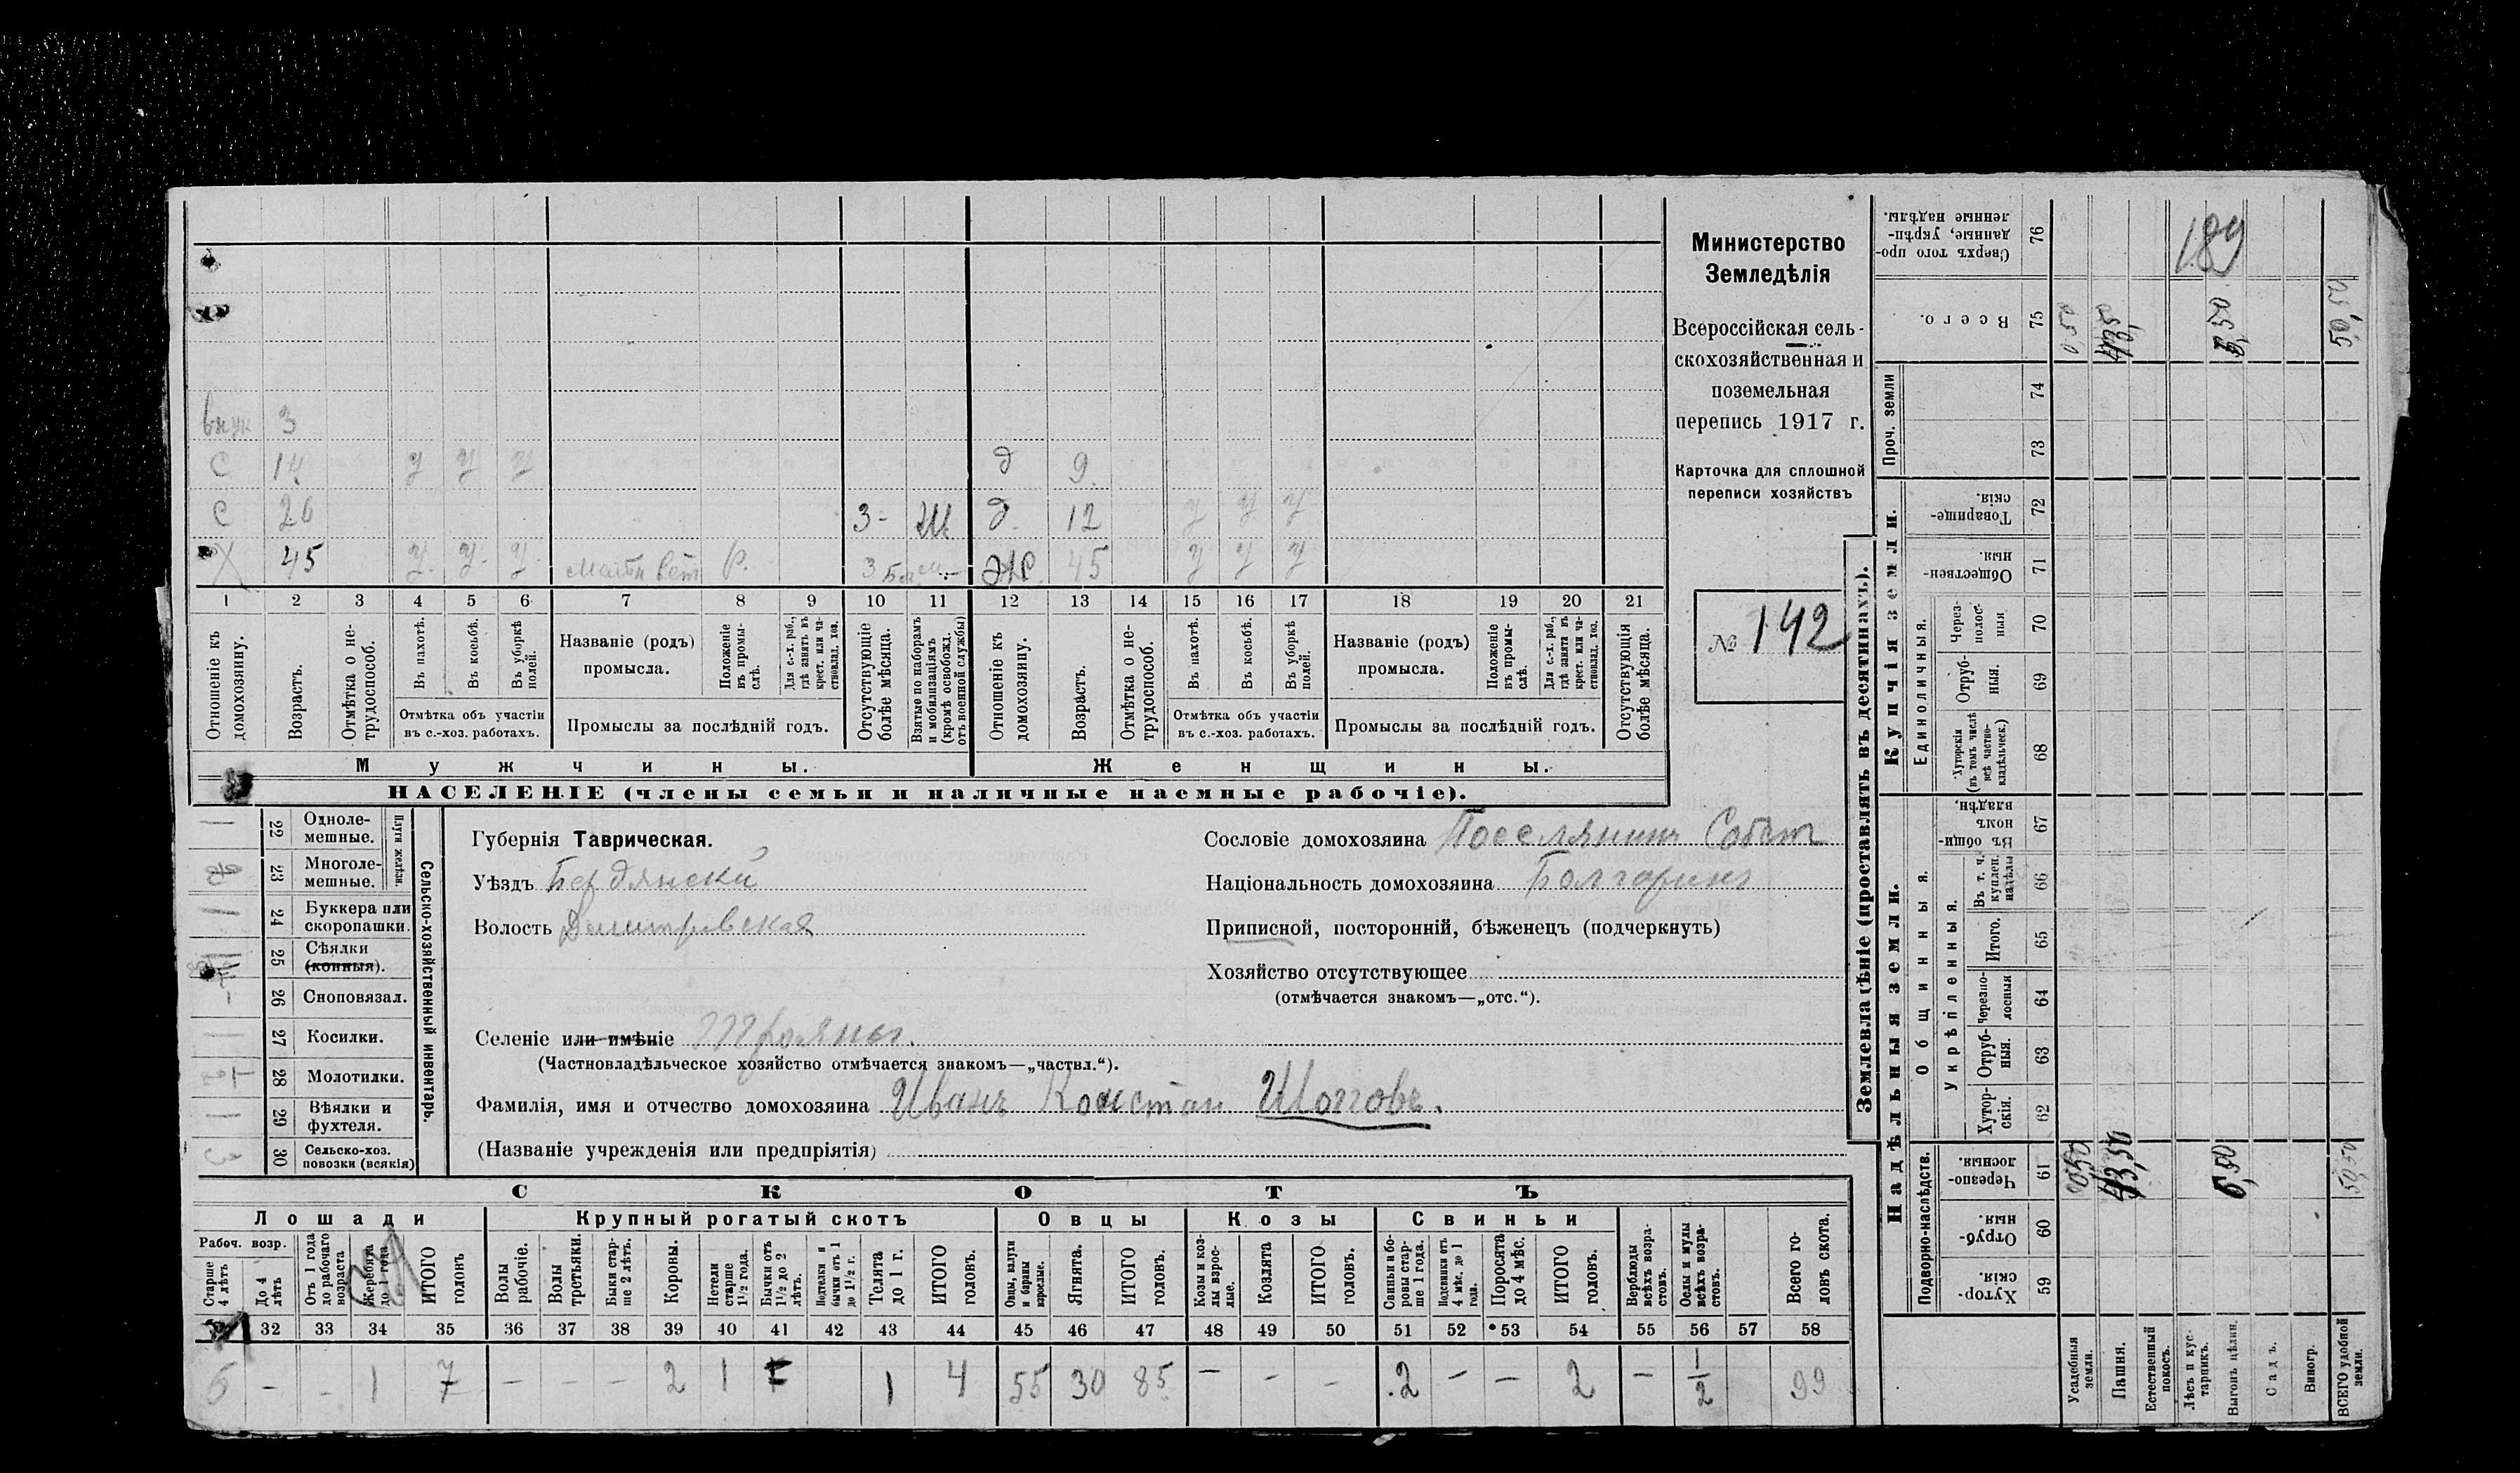 Министерство
Земледѣлія
Всероссійская сель-
скохозяйственная и
поземельная
перепись 1917 г.
Карточка для сплошной
переписи хозяйствъ
№ 142
внук 3
С 14 У У У д 9
С 26 3- д 12 У У У
Х 45 У У У Р. Ж 45 У У У
1 2 3 4 5 6 7 8 9 10 11 12 13 14 15 16 17 18 19 20 21
Отношеніе къ домохозяину.
Возрастъ.
Отмѣтка о не-трудоспособ.
Въ пахотѣ.
Въ косьбѣ.
Въ уборкѣ полей.
Отмѣтка объ участіи
въ с.-хоз. работахъ.
Названіе (родъ)
промысла.
Положеніе въ промы-слѣ.
Для с.-х. раб., гдѣ занятъ въ крест. или ча-стновлад. хоз.
Промыслы за послѣдній годъ.
Отсутствующіе болѣе мѣсяца.
Взятые по наборамъ и мобилизаціямъ (кромѣ освобожд. отъ военной службы)
Отношеніе къ домохозяину.
Возрастъ.
Отмѣтка о не-трудоспособ.
Въ пахотѣ.
Въ косьбѣ.
Въ уборкѣ полей.
Отмѣтка объ участіи
въ с.-хоз. работахъ.
Названіе (родъ)
промысла.
Положеніе въ промы-слѣ.
Для с.-х. раб., гдѣ занята въ крест. или ча-стновлад. хоз.
Промыслы за послѣдній годъ.
Отсутствующія болѣе мѣсяца.
Мужчины. Женщины.
НАСЕЛЕНІЕ (члены семьи и наличные наемные рабочіе).
Сельско-хозяйственный инвентарь.
Плуги желѣзн.
22 Одноле-мешные.
23 Многоле-мешные.
24 Буккера или скоропашки.
25 Сѣялки (конныя).
26 Сноповязал.
27 Косилки.
28 Молотилки.
29 Вѣялки и фухтеля.
30 Сельско-хоз. повозки (всякія)
Губернія Таврическая.
Уѣздъ Бердянскій
Волость Димитровская
Селеніе или имѣніе Трояны.
(Частновладѣльческое хозяйство отмѣчается знакомъ—„частвл.“).
Фамилія, имя и отчество домохозяина Иванъ Констан Шоповъ.
(Названіе учрежденія или предпріятія)
Сословіе домохозяина Поселянинъ Собств
Національность домохозяина Болгаринъ
Приписной, посторонній, бѣженецъ (подчеркнуть)
Хозяйство отсутствующее
(отмѣчается знакомъ—„отс.“).
СКОТЪ
Лошади Крупный рогатый скотъ Овцы Козы Свиньи
Рабоч. возр.
Старше 4 лѣтъ
До 4 лѣтъ
Отъ 1 года до рабочаго возраста
Жеребята до 1 года
ИТОГО головъ
Волы рабочіе.
Волы третьяки.
Быки стар-ше 2 лѣтъ.
Коровы.
Нетели старше 1½ года.
Бычки отъ 1½ до 2 лѣтъ.
Подтелки и бычки отъ 1 до 1½ г.
Телята до 1 г.
ИТОГО головъ.
Овцы, валухи и бараны взрослые.
Ягнята.
ИТОГО головъ.
Козы и коз-лы взрос-лые.
Козлята
ИТОГО головъ.
Свиньи и бо-ровы стар-ше 1 года.
Подсвинки отъ 4 мѣс. до 1 года.
Поросята до 4 мѣс.
ИТОГО головъ.
Верблюды всѣхъ возра-стовъ.
Ослы и мулы всѣхъ возра-стовъ.
Всего го-ловъ скота.
32 33 34 35 36 37 38 39 40 41 42 43 44 45 46 47 48 49 50 51 52 53 54 55 56 57 58
6 - - 1 7 - - - 2 1 1 4 55 30 85 - - - 2 - - 2 - 1/2 99
Землевладѣніе (проставлять въ десятинахъ).
Надѣльныя земли. Купчія земли. Проч. земли
Подворно-наслѣдств.
Общинныя.
Укрѣпленныя.
Единоличныя.
59 Хутор-скія.
60 Отруб-ныя.
61 Черезпо-лосныя.
62 Хутор-скія.
63 Отруб-ныя.
64 Черезпо-лосныя
65 Итого.
66 Въ т. ч. куплен. надѣлы
67 Въ общи-номъ владѣн.
68 Хуторскія (въ томъ числѣ всѣ частно-владѣльческ.)
69 Отруб-ныя.
70 Через-полос-ныя
71 Обществен-ныя.
72 Товарище-скія.
73
74
75 Всего.
76 Сверхъ того про-данные, укрѣп-ленные надѣлы.
189
Усадебныя земли. 0,50 0,50
Пашня. 43,50
Естественный покосъ.
Лѣсъ и кус-тарникъ.
Выгонъ цѣлин. 6,50 6,50
Садъ.
Виногр.
ВСЕГО удобной земли. 50,50 50,50